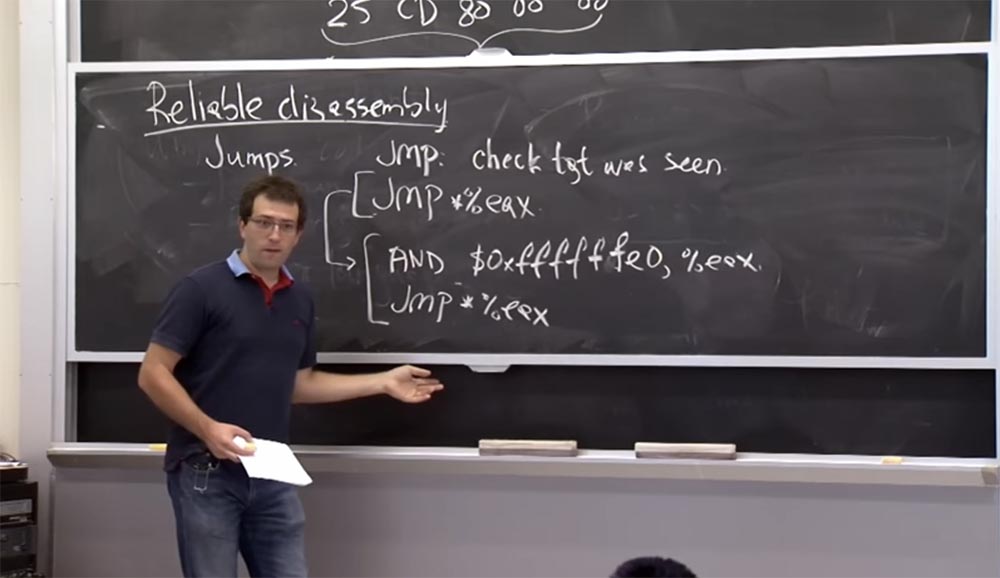 25 CD 80 00 00
Reliable disassembly
Jumps. JMP: check tgt was seen.
JMP *%eax.
AND $0xffffffe0, %eax.
JMP *%eax